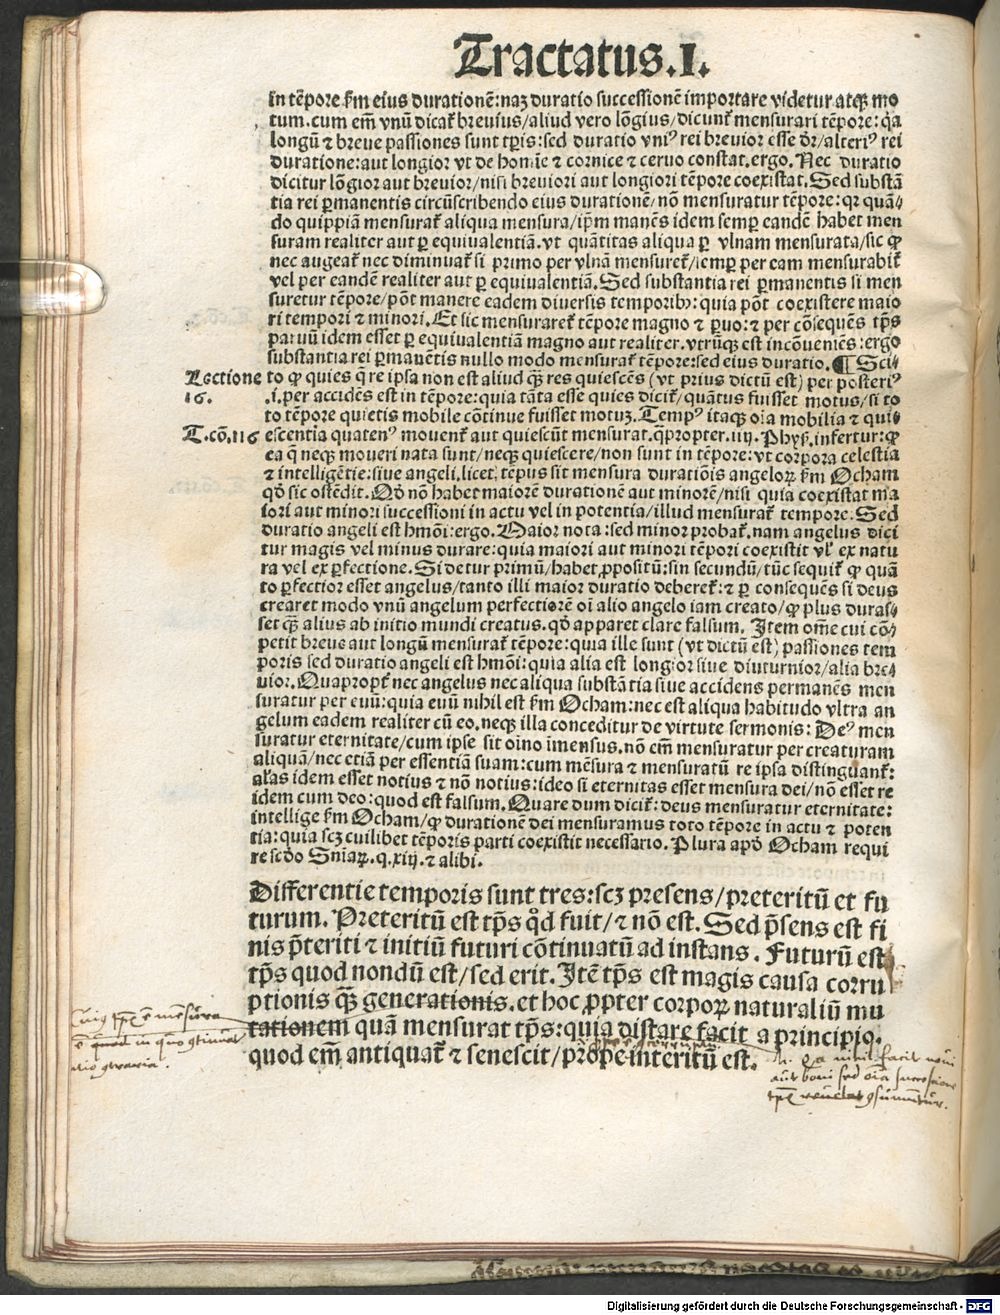 Tractatus.I.
in tēpore ẜm eius durationē:naꝫ duratio successionē importare videtur atqꝫ mo
tum.cum em̄ vnū dicat᷑ breuius/aliud vero lōgius/dicunt᷑ mensurari tēpore:q̄a
longū ⁊ breue passiones sunt tꝑis:sed duratio vniꝰ rei breuior esse dr̄/alteriꝰ rei
duratione:aut longior vt de homīe ⁊ cornice ⁊ ceruo constat.ergo. Nec duratio
dicitur lōgior aut breuior/nisi breuiori aut longiori tēpore coexistat. Sed substā
tia rei ꝑmanentis circūscribendo eius durationē/nō mensuratur tēpore: qꝛ quā⸗
do quippiā mensurat᷑ aliqua mensura/ip̄m manēs idem semꝑ eandē habet men
suram realiter aut ꝑ equiualentiā. vt quātitas aliqua ꝑ vlnam mensurata/sic ꝙ
nec augeat᷑ nec diminuat᷑ si primo per vlnā mensuret᷑/semꝑ per eam mensurabit᷑
vel per eandē realiter aut ꝑ equiualentiā. Sed substantia rei ꝑmanentis si men
suretur tēpore/pōt manere eadem diuersis temporibꝰ: quia pōt coexistere maio
ri tempori ⁊ minori. Et sic mensuraret᷑ tēpore magno ⁊ ꝑuo: ⁊ per cōsequēs tp̄s
paruū idem esset ꝑ equiualentiā magno aut realiter. vtrūqꝫ est incōueniēs: ergo
substantia rei ꝑmanētis nullo modo mensurat᷑ tēpore: sed eius duratio. ¶ Sci⸗
Lectione to ꝙ quies q̄ re ipsa non est aliud qꝫ̄ res quiescēs (vt prius dictū est) per posteriꝰ
16. .i. per accidēs est in tēpore: quia tāta esse quies dicit᷑/ quātus fuisset motus/ si to
to tēpore quietis mobile cōtinue fuisset motuꝫ. Tempꝰ itaqꝫ oīa mobilia ⁊ qui⸗
T.cō.116 escentia quatenꝰ mouent᷑ aut quiescūt mensurat. q̄propter. iiij. Phys̄. infertur: ꝙ
ea q̄ neqꝫ moueri nata sunt/ neqꝫ quiescere/ non sunt in tēpore: vt corpora celestia
⁊ intelligētie: siue angeli. licet, tēpus sit mensura duratiōis angeloꝝ ẜm Ocham
qd̄ sic ostēdit. Qd̄ nō habet maiorē durationē aut minorē/ nisi quia coexistat ma
iori aut minori successioni in actu vel in potentia/ illud mensurat᷑ tempore. Sed
duratio angeli est hmōi: ergo. Maior nota: sed minor probat᷑. nam angelus dici
tur magis vel minus durare: quia maiori aut minori tēpori coexistit vl̄ ex natu
ra vel ex ꝑfectione. Si detur primū/ habet᷑ ꝓpositū: sin secundū/ tūc sequit᷑ ꝙ quā
to ꝑfectior esset angelus/ tanto illi maior duratio deberet᷑: ⁊ ꝑ consequēs si deus
crearet modo vnū angelum perfectiorē oī alio angelo iam creato/ ꝙ plus duras⸗
set qꝫ̄ alius ab initio mundi creatus. qd̄ apparet clare falsum. Item om̄e cui cō⸗
petit breue aut longū mensurat᷑ tēpore: quia ille sunt (vt dictū est) passiones tem
poris sed duratio angeli est hmōi: quia alia est longior siue diuturnior/ alia bre⸗
uior. Quapropt᷑ nec angelus nec aliqua substātia siue accidens permanēs men
suratur per euū: quia euū nihil est ẜm Ocham: nec est aliqua habitudo vltra an
gelum eadem realiter cū eo. neqꝫ illa conceditur de virtute sermonis: Deꝰ men
suratur eternitate/ cum ipse sit oīno īmensus. nō em̄ mensuratur per creaturam
aliquā/ nec etiā per essentiā suam: cum mēsura ⁊ mensuratū re ipsa distinguant᷑:
al̄as idem esset notius ⁊ nō notius: ideo si eternitas esset mensura dei/ nō esset re
idem cum deo: quod est falsum. Quare dum dicit᷑: deus mensuratur eternitate:
intellige ẜm Ocham/ ꝙ durationē dei mensuramus toto tēpore in actu ⁊ poten
tia: quia scꝫ cuilibet tēporis parti coexistit necessario. Plura apd̄ Ocham requi
re scd̄o Sniaꝝ. q. xiij. ⁊ alibi.
Differentie temporis sunt tres: scꝫ presens/ preteritū et fu
turum. Preteritū est tp̄s qd̄ fuit/ ⁊ nō est. Sed p̄sens est fi
nis p̄teriti ⁊ initiū futuri cōtinuatū ad instans. Futurū est
tp̄s quod nondū est/ sed erit. Itē tp̄s est magis causa corru
ptionis qꝫ̄ generationis. et hoc ꝓpter corpoꝝ naturaliū mu
tationem quā mensurat tp̄s: quia distare facit a principio.
quod em̄ antiquat᷑ ⁊ senescit/ prope interitū est.
Digitalisierung gefördert durch die Deutsche Forschungsgemeinschaft - DFG